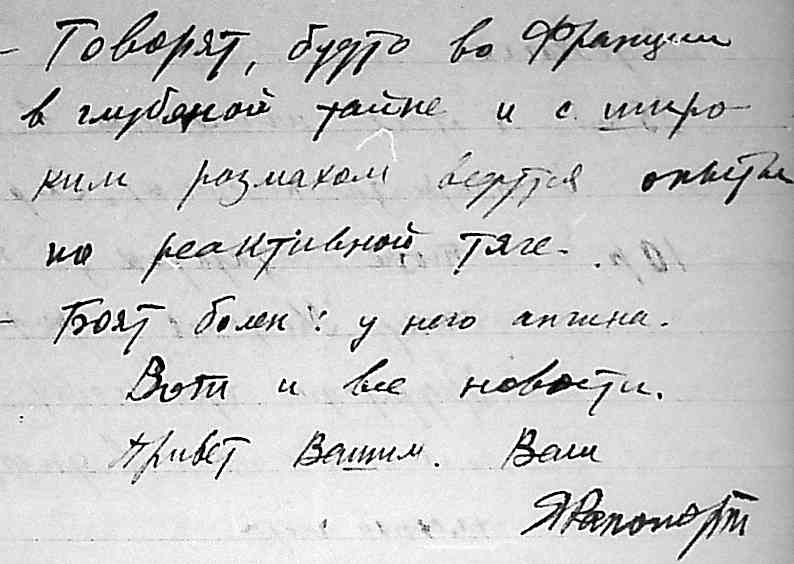 - Говорят, будто во Франции
в глубокой тайне и с широ-
ким размахом ведутся опыты
по реактивной тяге.
- Боят болен: у него ангина.
Вот и все новости.
Привет Вашим. Ваш
ЯРапопорт